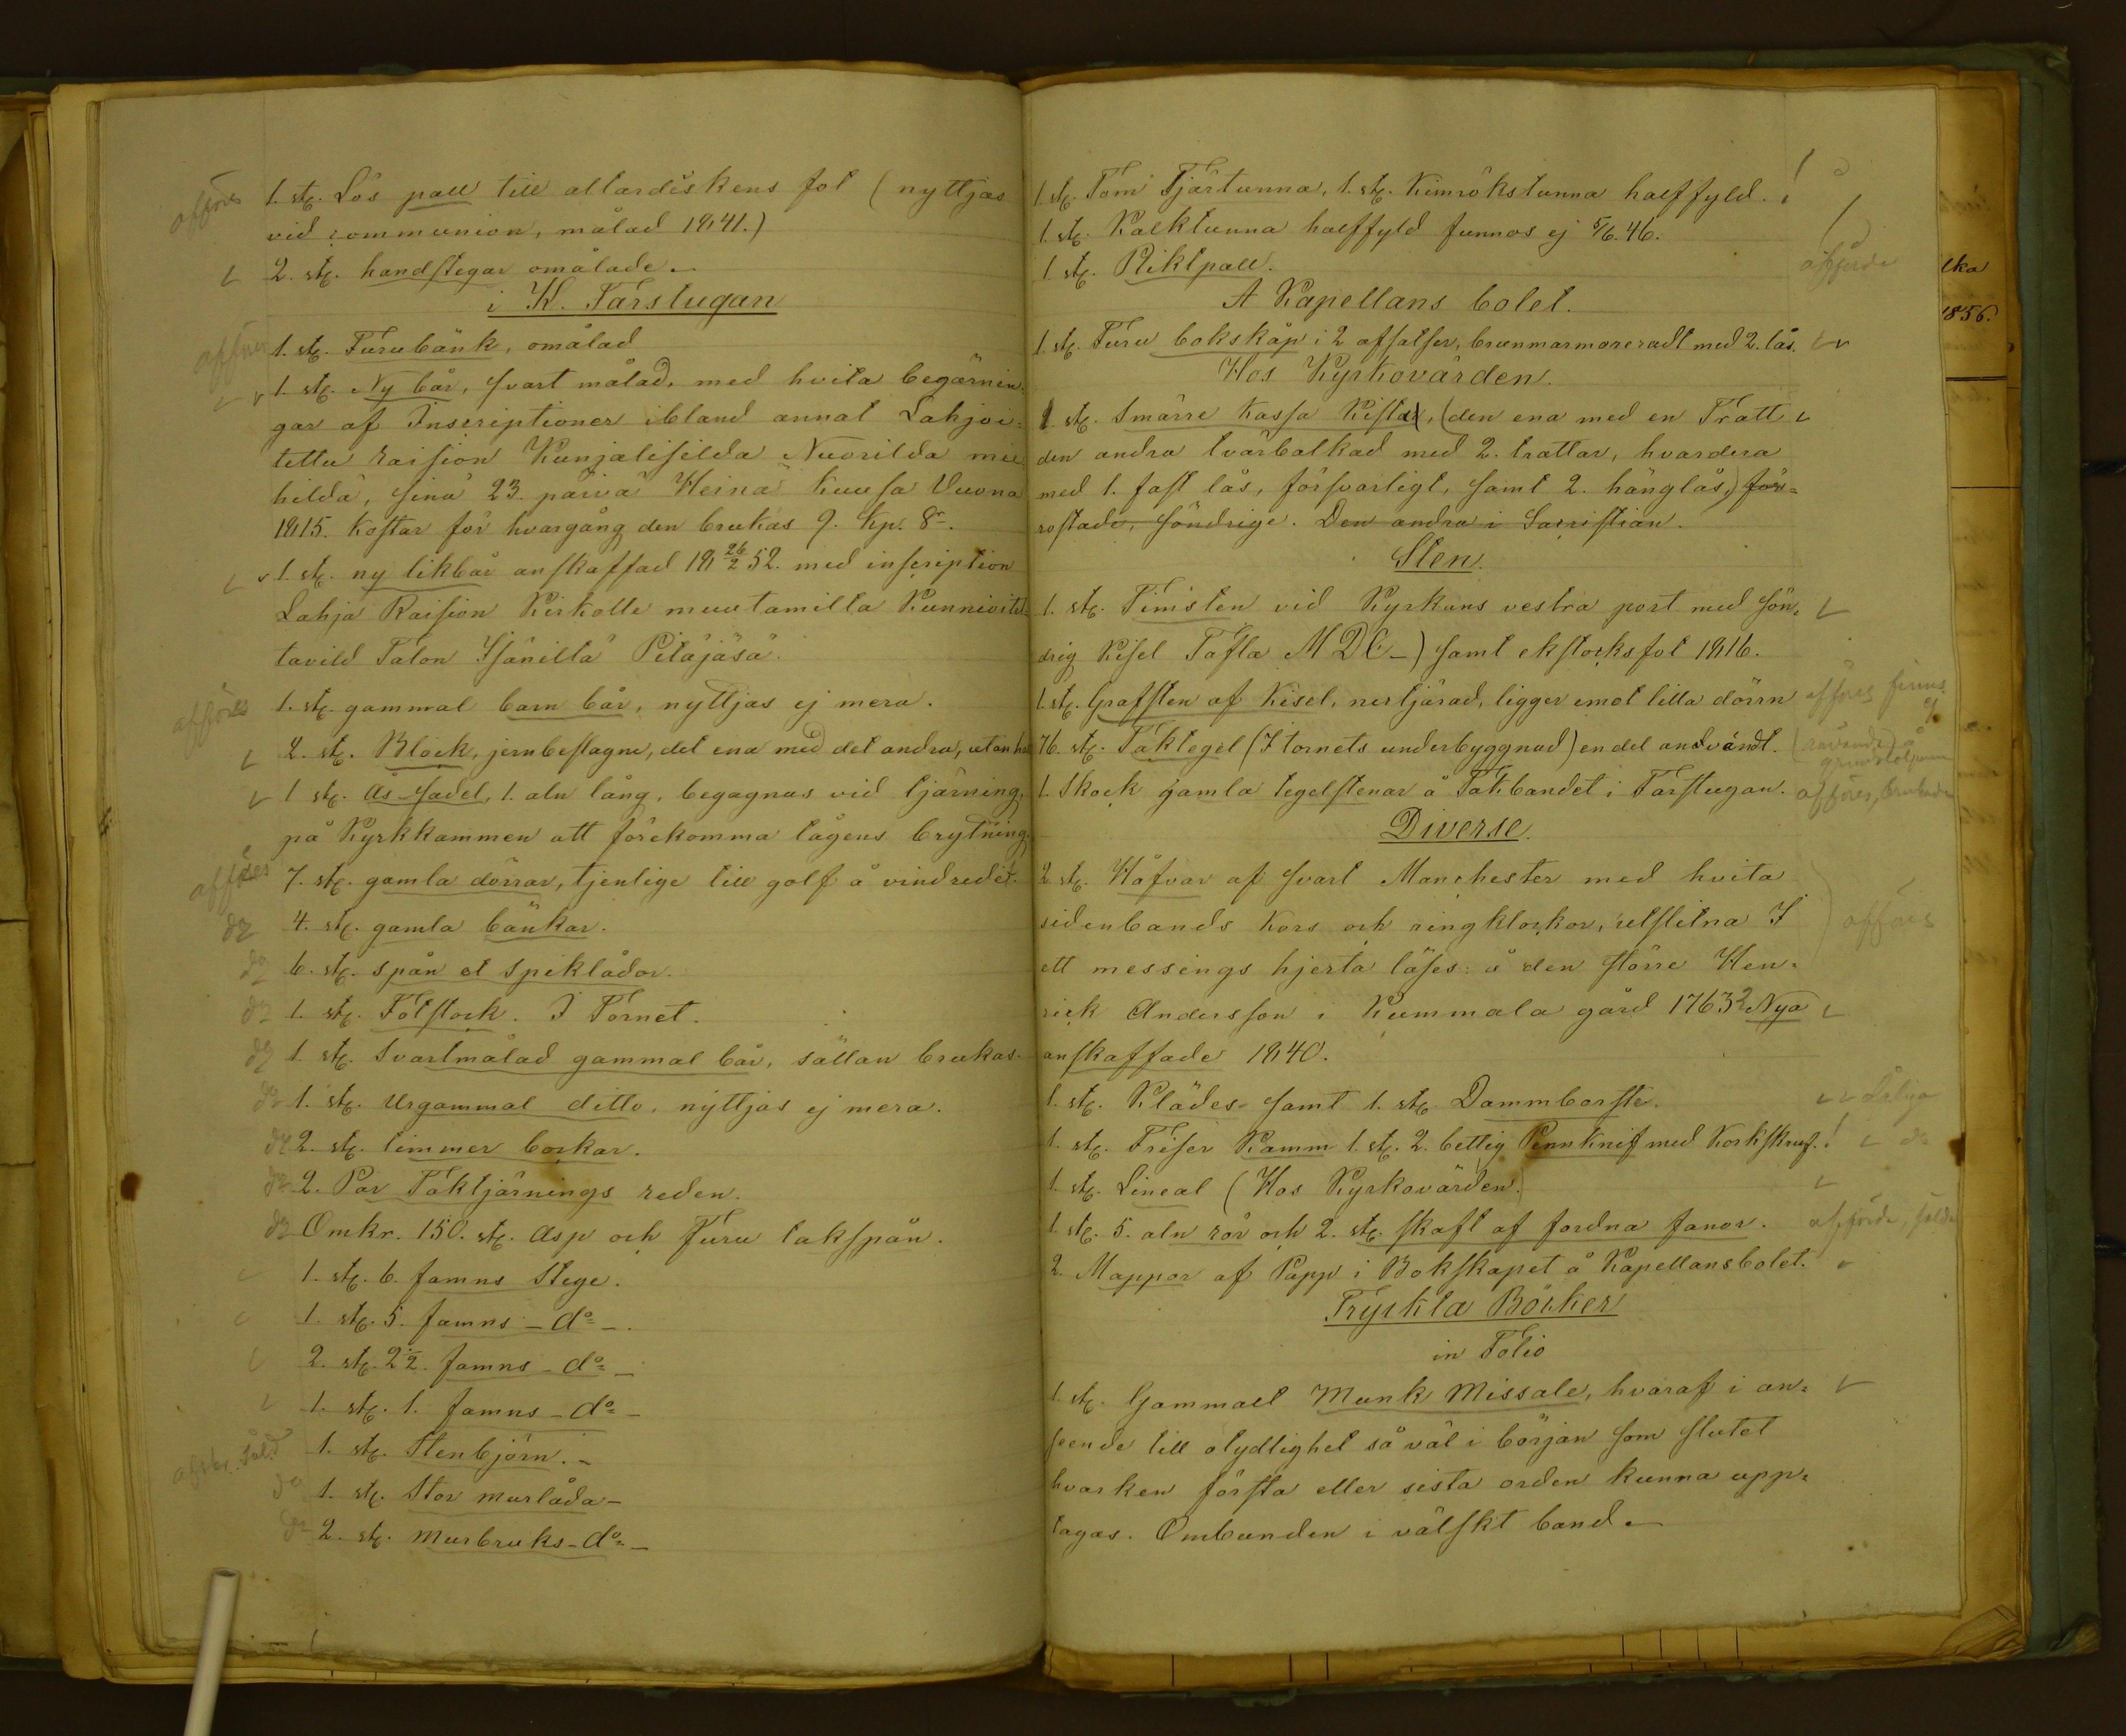 afföres 1. st. Lös pall till altardiskens fot (nyttjas
vid communion, målad 1841.)
2. st. handstegar omålade.
i K. Farstugan
afföres 1. st. Furubänk, omålad
1. st. Ny bår, svart målad, med hvita begärnin-
gar af Inscriptioner ibland annat Lahjoi-
tettu Raision Kunjalisilda Nuorilda mie
hildä, sinä 23. päivä Heinä kuusa Vuona
1815. Kostar för hvargång den brukas 9. kp. Sr.
1. st. ny likbår anskaffad 18 26/2 52. med inscription
Lahja Raision Kirkolle muutamilta Kunnioitet-
tavild Talon Isäniltä Pitäjäsä.
afföres 1. st. gammal barn bår, nyttjas ej mera.
2. st. Block, jernbeslagne, det ena med det andra, utan
1 st. Ås-sadel, 1. aln lång, begagnas vid tjärning,
på Kyrkkammen att förekomma tågens brytning.
afföres 7. st. gamla dörrar, tjenlige till golf å vindredet.
do 4. st. gamla bänkar.
do 6. st. spån et spiklådor.
do 1. st. Fotstock. I Tornet.
do 1. st. Svartmålad gammal bår, sällan brukas.
do 1. st. Urgammal ditto, nyttjas ej mera.
do 2. st. timmer bockar.
do 2. Par Taktjärnings reden.
do Omkr. 150. st. Asp och Furu takspån.
1. st. 6. famns Stege.
1. st. 5. famns - do -.
2. st. 2 1/2. famns - do -
1. st. 1. famns - do -
såld 1. st. Stenbjörn. -
do 1. st. Stor murlåda -
do 2. st. Murbruks - do -
1. st. Tom Tjärtunna, 1. st. Kimrökstunna halffyld.
1. st. Kalktunna halffyld funnos ej 5/6. 46.
1 st. Riktpall. afförde
A Kapellans bolet.
1. st. Furu bokskåp i 2 afsatser, brunmarmoreradt med 2. lås.
Hos Kyrkovärden.
1. st. Smärre Kassa Kistar, (den ena med en Tratt
den andra tvärbalkad med 2. trattar, hvardera
med 1. fast lås, försvarligt, samt 2. hänglås,) för-
rostade, söndrige. Den andra i Sacristian.
Sten.
1. st. Timsten vid Kyrkans vestra port med sön-
drig Kisel Tafla MDC-) samt ekstocksfot 1816.
1. st. Grafsten af Kisel, nertjärad, ligger emot lilla dörrn afföres finns
ej
76. st. Taktegel (I tornets underbyggnad) en del andvändt.
1. Skock gamla tegelstenar å Takbandet i Farstugan. afföres, brukade
Diverse.
2. st. Håfvar af svart Manchester med hvita
sidenbands Kors och ringklockor, utslitna I afföres
ett messings hjerta läses: å den större Hen-
rick Andersson i Kummala gård 1763 2 Nya
anskaffade 1840.
1. st. Klädes- samt 1. st. Dammborste.
1. st. Friser Kamm 1. st. 2. bettig Pennknif med Korkskruf. do
1. st. Lineal (Hos Kyrkovärden.)
1 st. 5. aln rör och 2. st. skaft af fordna fanor. afförde, sålda
2. Mappor af Papp i Bokskapet å Kapellansbolet.
Tryckta Böcker
in Folio
1. st. Gammalt Munk Missale, hvaraf i an-
seende till otydlighet så väl i början som slutet
hvarken första eller sista orden kunna upp-
tagas. Ombunden i välskt band.
lka
1856.